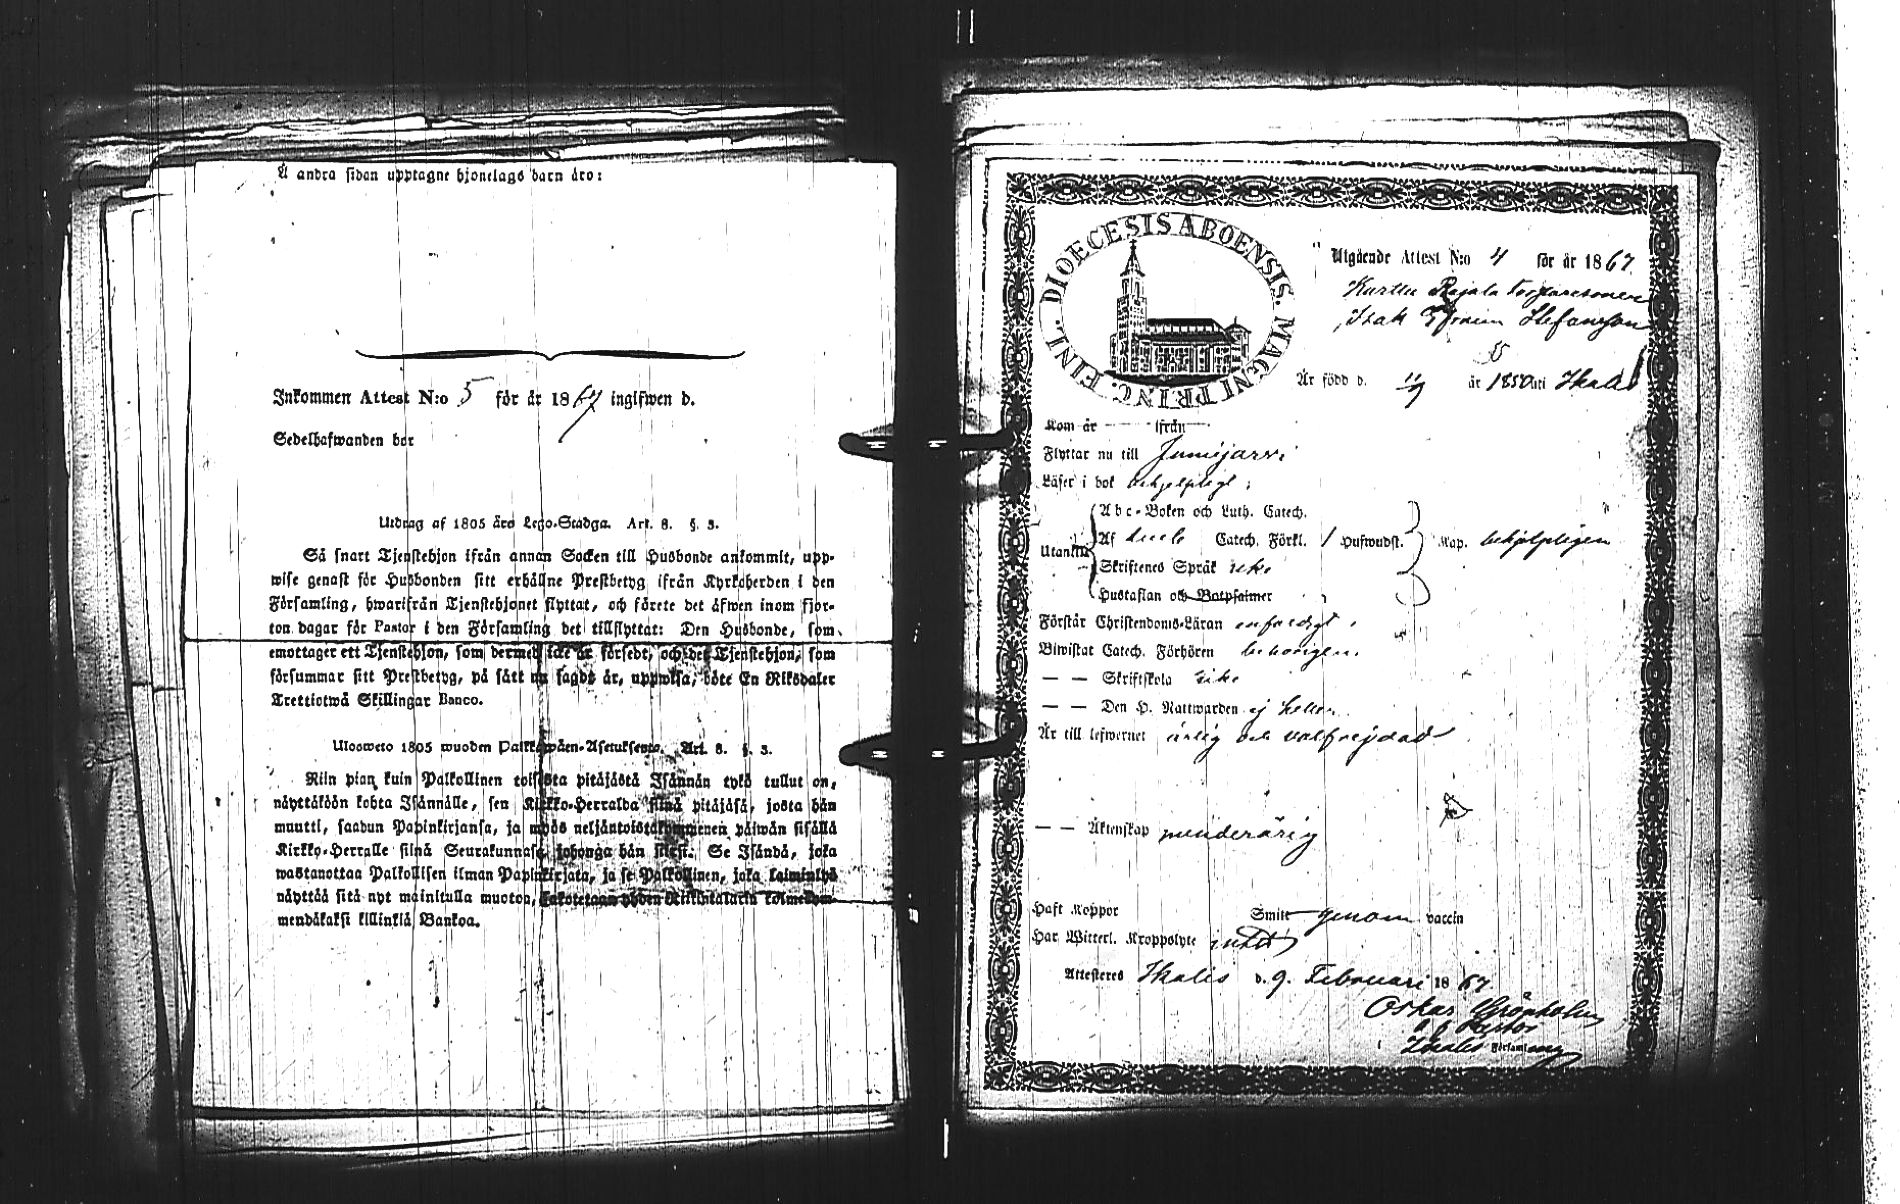 Å andra sidan upptagne hjonelags barn äro:
Inkommen Attest N:o 5 för år 1867 ingifwen d.
Sedelhafwanden bor
Utdrag af 1805 års Lego-Stadga. Art. 8. §. 3.
Så snart Tjenstehjon ifrån annan Socken till Husbonde ankommit, upp-
wise genast för Husbonden sitt erhållne Prestbetyg ifrån Kyrkoherden i den
Församling, hwarifrån Tjenstehjonet flyttat, och förete det äfwen inom fjor-
ton dagar för Pastor i den Församling det tillflyttat: Den Husbonde, som
emottager ett Tjenstehjon, som dermed icke är försedt, och det Tjenstehjon, som
försummar sitt Prestbetyg, på sätt nu sagdt är, uppwisa, böte En Riksdaler
Trettiotwå Skillingar Banco.
Ulosweto 1805 wuoden Palkkawäen-Asetuksesta. Art. 8. §. 3.
Niin pian kuin Palkollinen toisesta pitäjästä Isännän tykö tullut on,
näyttäköön kohta Isännälle, sen Kirkko-Herralda siinä pitäjäsä, josta hän
muutti, saadun Papinkirjansa, ja myös neljäntoistakymmenen päiwän sisällä
Kirkko-Herralle siinä Seurakunnasa, johonga hän siirsi: Se Isändä, joka
wastanottaa Palkollisen ilman Papinkirjata, ja se Palkollinen, joka laiminlyö
näyttää sitä nyt mainitulla muoton, sakotetaan yhden Riikintalarin kolmekym-
mendäkaksi killinkiä Bankoa.
DIOECESIS ABOENSIS. MAGNI PRINC. FINL.
Utgående Attest N:o 4 för år 1867
Kurttu Rajala Torparesonen
Isak Efraim Stefansson
Är född d. 11/9 år 1850 uti Ikalis
Kom år ifrån
Flyttar nu till Jumijärvi
Läser i bok behjelpligt;
Abc-Boken och Luth. Catech.
Utantill Af Catech. Förkl. 1 Hufwudst. Kap. behjelpligen
Skriftenes Språk icke
Hustaflan och Botpsalmer
Förstår Christendoms-Läran enfaldigt.
Biwistat Catech. Förhören behörigen.
— — Skriftskola icke
— — Den H. Nattwarden ej heller
Är till lefwernet ärlig och välfrejdad
— — Äktenskap minderårig
Haft Koppor Smitt genom vaccin
Har Witterl. Kroppslyte intet
Attesteres Ikalis d. 9. Februari 1867
Oskar Grönholm
Pastor
Ikalis Församling